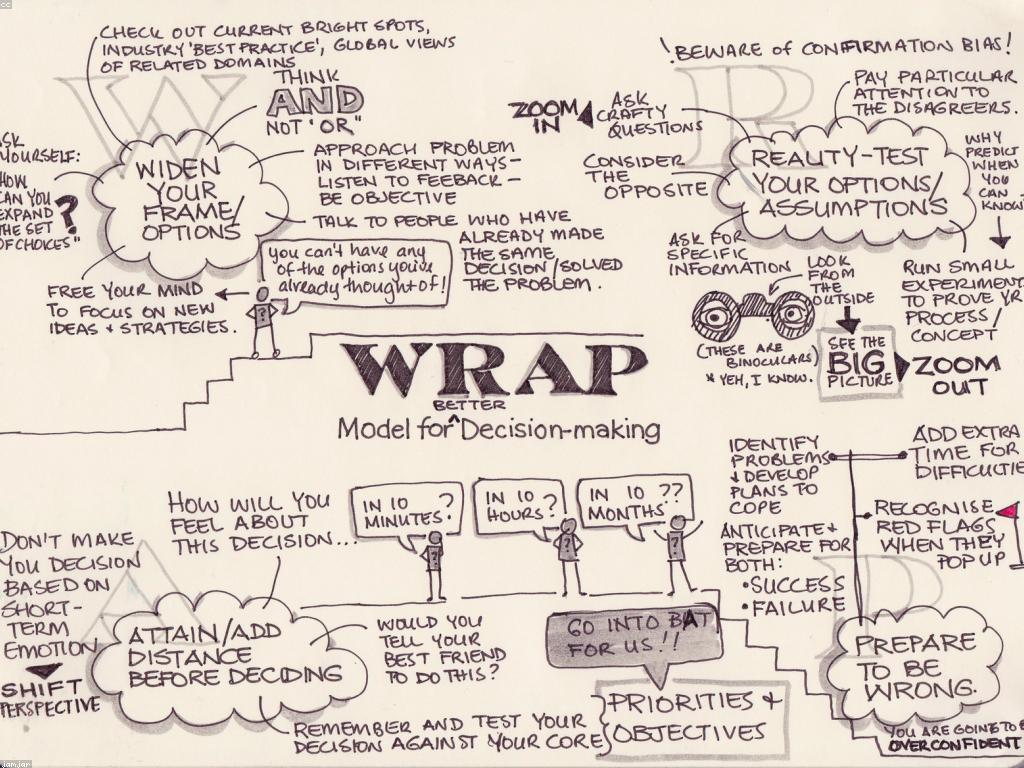 cc
CHECK OUT CURRENT BRIGHT SPOTS,
INDUSTRY 'BEST PRACTICE', GLOBAL VIEWS
OF RELATED DOMAINS
THINK
AND
NOT "OR"
W
ASK
YOURSELF:
"HOW
CAN YOU
EXPAND
THE SET
OF CHOICES"
?
WIDEN
YOUR
FRAME/
OPTIONS
APPROACH PROBLEM
IN DIFFERENT WAYS -
LISTEN TO FEEBACK -
BE OBJECTIVE
TALK TO PEOPLE WHO HAVE
ALREADY MADE
THE SAME
DECISION/SOLVED
THE PROBLEM.
you can't have any
of the options you've
already thought of!
FREE YOUR MIND
TO FOCUS ON NEW
IDEAS + STRATEGIES.
!BEWARE OF CONFIRMATION BIAS!
R
PAY PARTICULAR
ATTENTION TO
THE DISAGREERS.
ZOOM
IN
ASK
CRAFTY
QUESTIONS
CONSIDER
THE
OPPOSITE
REALITY-TEST
YOUR OPTIONS/
ASSUMPTIONS
WHY
PREDICT
WHEN
YOU
CAN
KNOW
ASK FOR
SPECIFIC
INFORMATION
LOOK
FROM
THE
OUTSIDE
(THESE ARE
BINOCULARS)
* YEH, I KNOW.
SEE THE
BIG
PICTURE
ZOOM
OUT
RUN SMALL
EXPERIMENT
TO PROVE YR
PROCESS/
CONCEPT
WRAP
BETTER
Model for ^ Decision-making
HOW WILL YOU
FEEL ABOUT
THIS DECISION...
IN 10
MINUTES?
IN 10
HOURS?
IN 10
MONTHS??
A
DON'T MAKE
YOU DECISION
BASED ON
SHORT-
TERM
EMOTION
SHIFT
PERSPECTIVE
ATTAIN/ADD
DISTANCE
BEFORE DECIDING
WOULD YOU
TELL YOUR
BEST FRIEND
TO DO THIS?
REMEMBER AND TEST YOUR
DECISION AGAINST YOUR CORE
GO INTO BAT
FOR US!!
PRIORITIES +
OBJECTIVES
IDENTIFY
PROBLEMS
+ DEVELOP
PLANS TO
COPE
ANTICIPATE +
PREPARE FOR
BOTH:
• SUCCESS
• FAILURE
ADD EXTRA
TIME FOR
DIFFICULTIE
RECOGNISE
RED FLAGS
WHEN THEY
POP UP
P
PREPARE
TO BE
WRONG.
YOU ARE GOING TO B
OVERCONFIDENT
jamjar